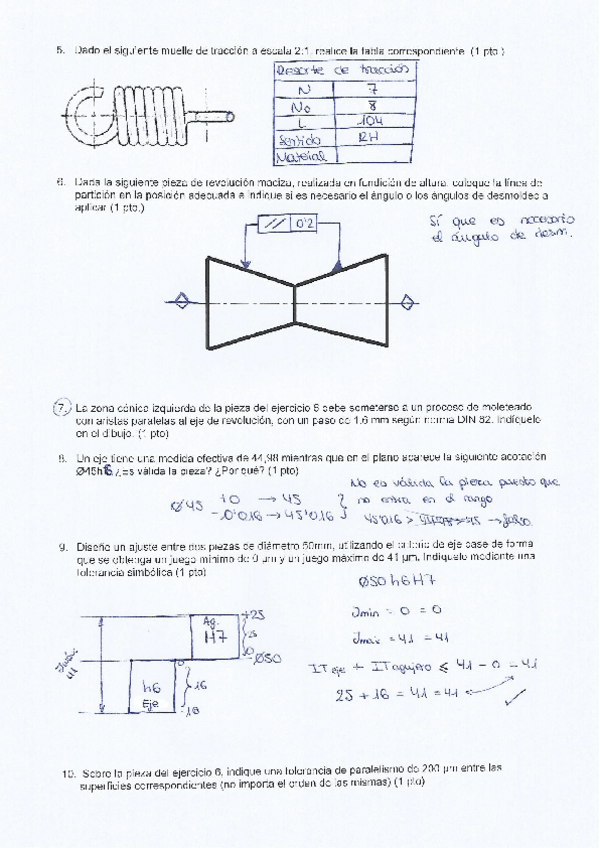 5. Dado el siguiente muelle de tracción a escala 2:1, realice la tabla correspondiente. (1 pto.)
Resorte de tracción
N 7
No 8
L 104
Sentido RH
Material
6. Dada la siguiente pieza de revolución maciza, realizada en fundición de altura, coloque la línea de
partición en la posición adecuada e indique si es necesario el ángulo o los ángulos de desmoldeo a
aplicar (1 pto.)
Sí que es necesario
el ángulo de desm.
// 0'2
7. La zona cónica izquierda de la pieza del ejercicio 6 debe someterse a un proceso de moleteado
con aristas paralelas al eje de revolución, con un paso de 1.6 mm según norma DIN 82. Indíquelo
en el dibujo. (1 pto)
8. Un eje tiene una medida efectiva de 44,98 mientras que en el plano aparece la siguiente acotación
Ø45h6 ¿Es válida la pieza? ¿Por qué? (1 pto)
No es válida la pieza puesto que
Ø45 10 → 45 no entra en el rango
-0'016 → 45'016 45'016 > → falso
9. Diseñe un ajuste entre dos piezas de diámetro 50mm, utilizando el criterio de eje base de forma
que se obtenga un juego mínimo de 0 µm y un juego máximo de 41 µm. Indíquelo mediante una
tolerancia simbólica (1 pto)
Ø50 h6 H7
+25
Ag.
H7
0
Ø50
Jmin = 0 = 0
Jmáx = 41 = 41
Jmáx
41
h6
Eje
16
-16
ITeje + ITagujero ≤ 41 - 0 = 41
25 + 16 = 41 = 41 ✓
10. Sobre la pieza del ejercicio 6, indique una tolerancia de paralelismo de 200 µm entre las
superficies correspondientes (no importa el orden de las mismas) (1 pto)